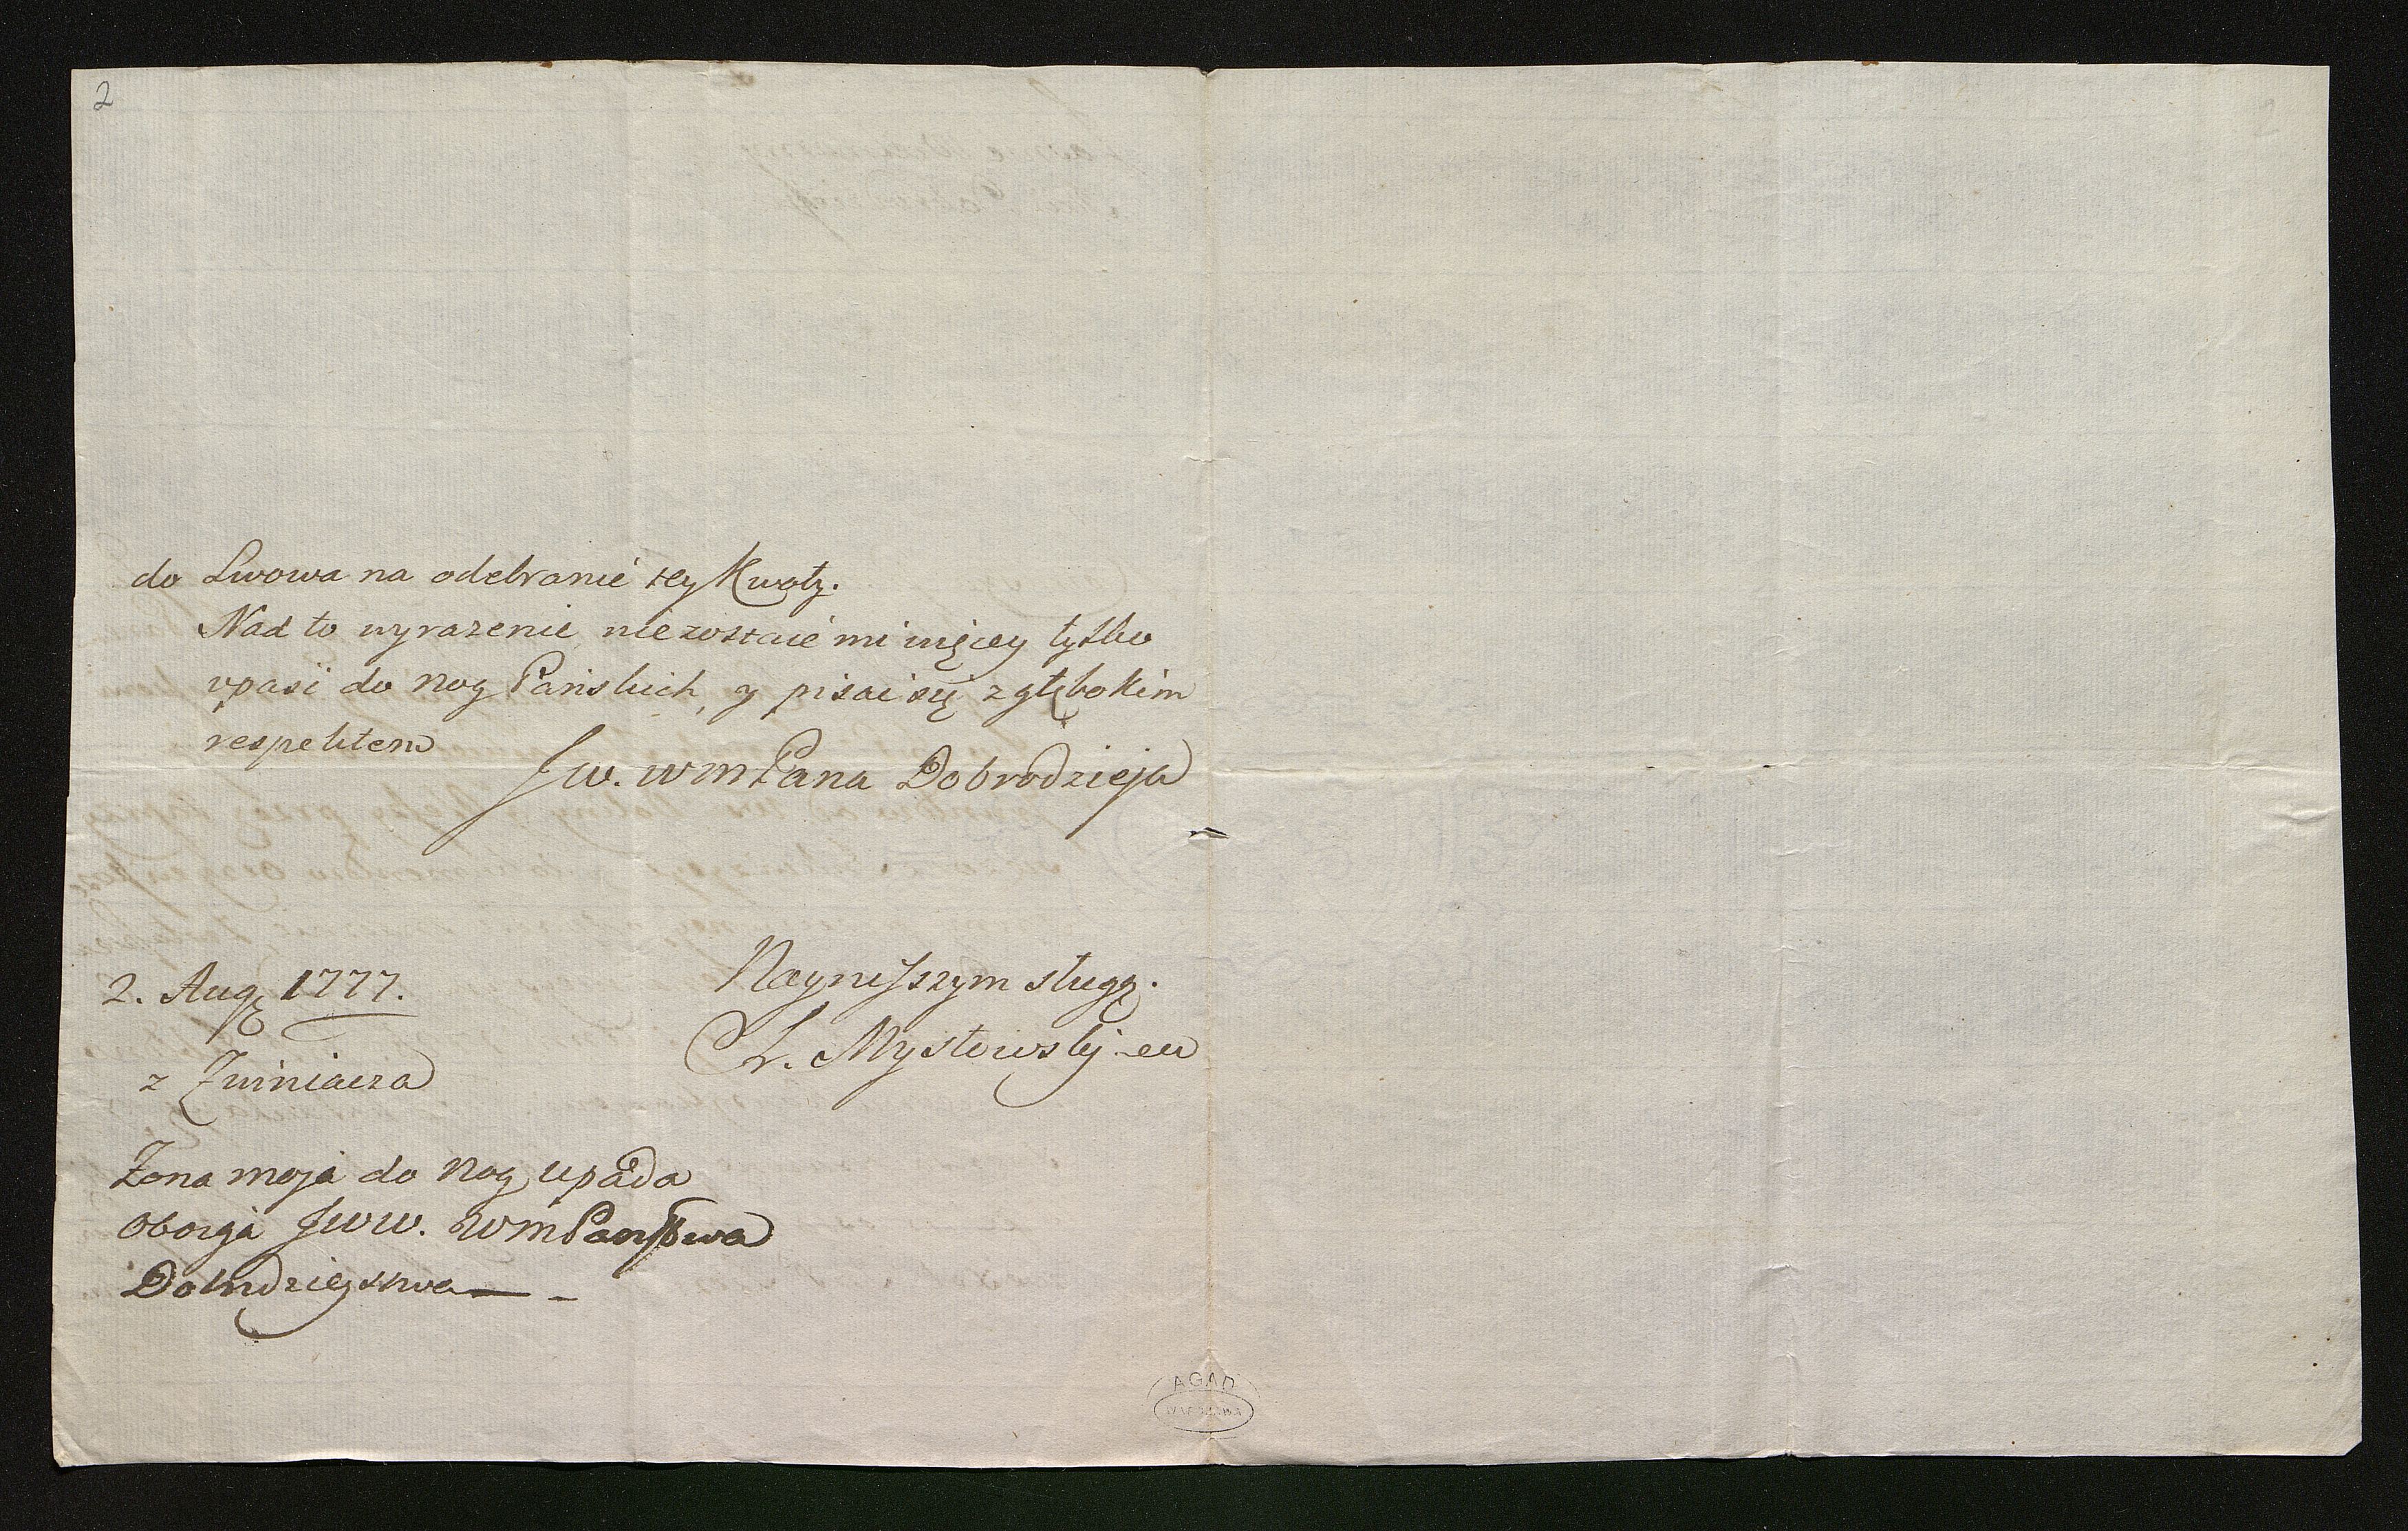 2
do Lwowa na odebranie tey Kwoty.
Nad to wyrazenie niezostaie mi więcey tylko
upaść do nog Pańskich, y pisać się z głębokim
respektem
JW. WM Pana Dobrodzieja
2. Aug 1777.
Nayniższym sługą.
z Zwiniacza
Mysłowskj
Zona moja do nog upada
oboyga JWW. WM Państwa
Dobrodzieystwa
AGAD
WARSZAWA